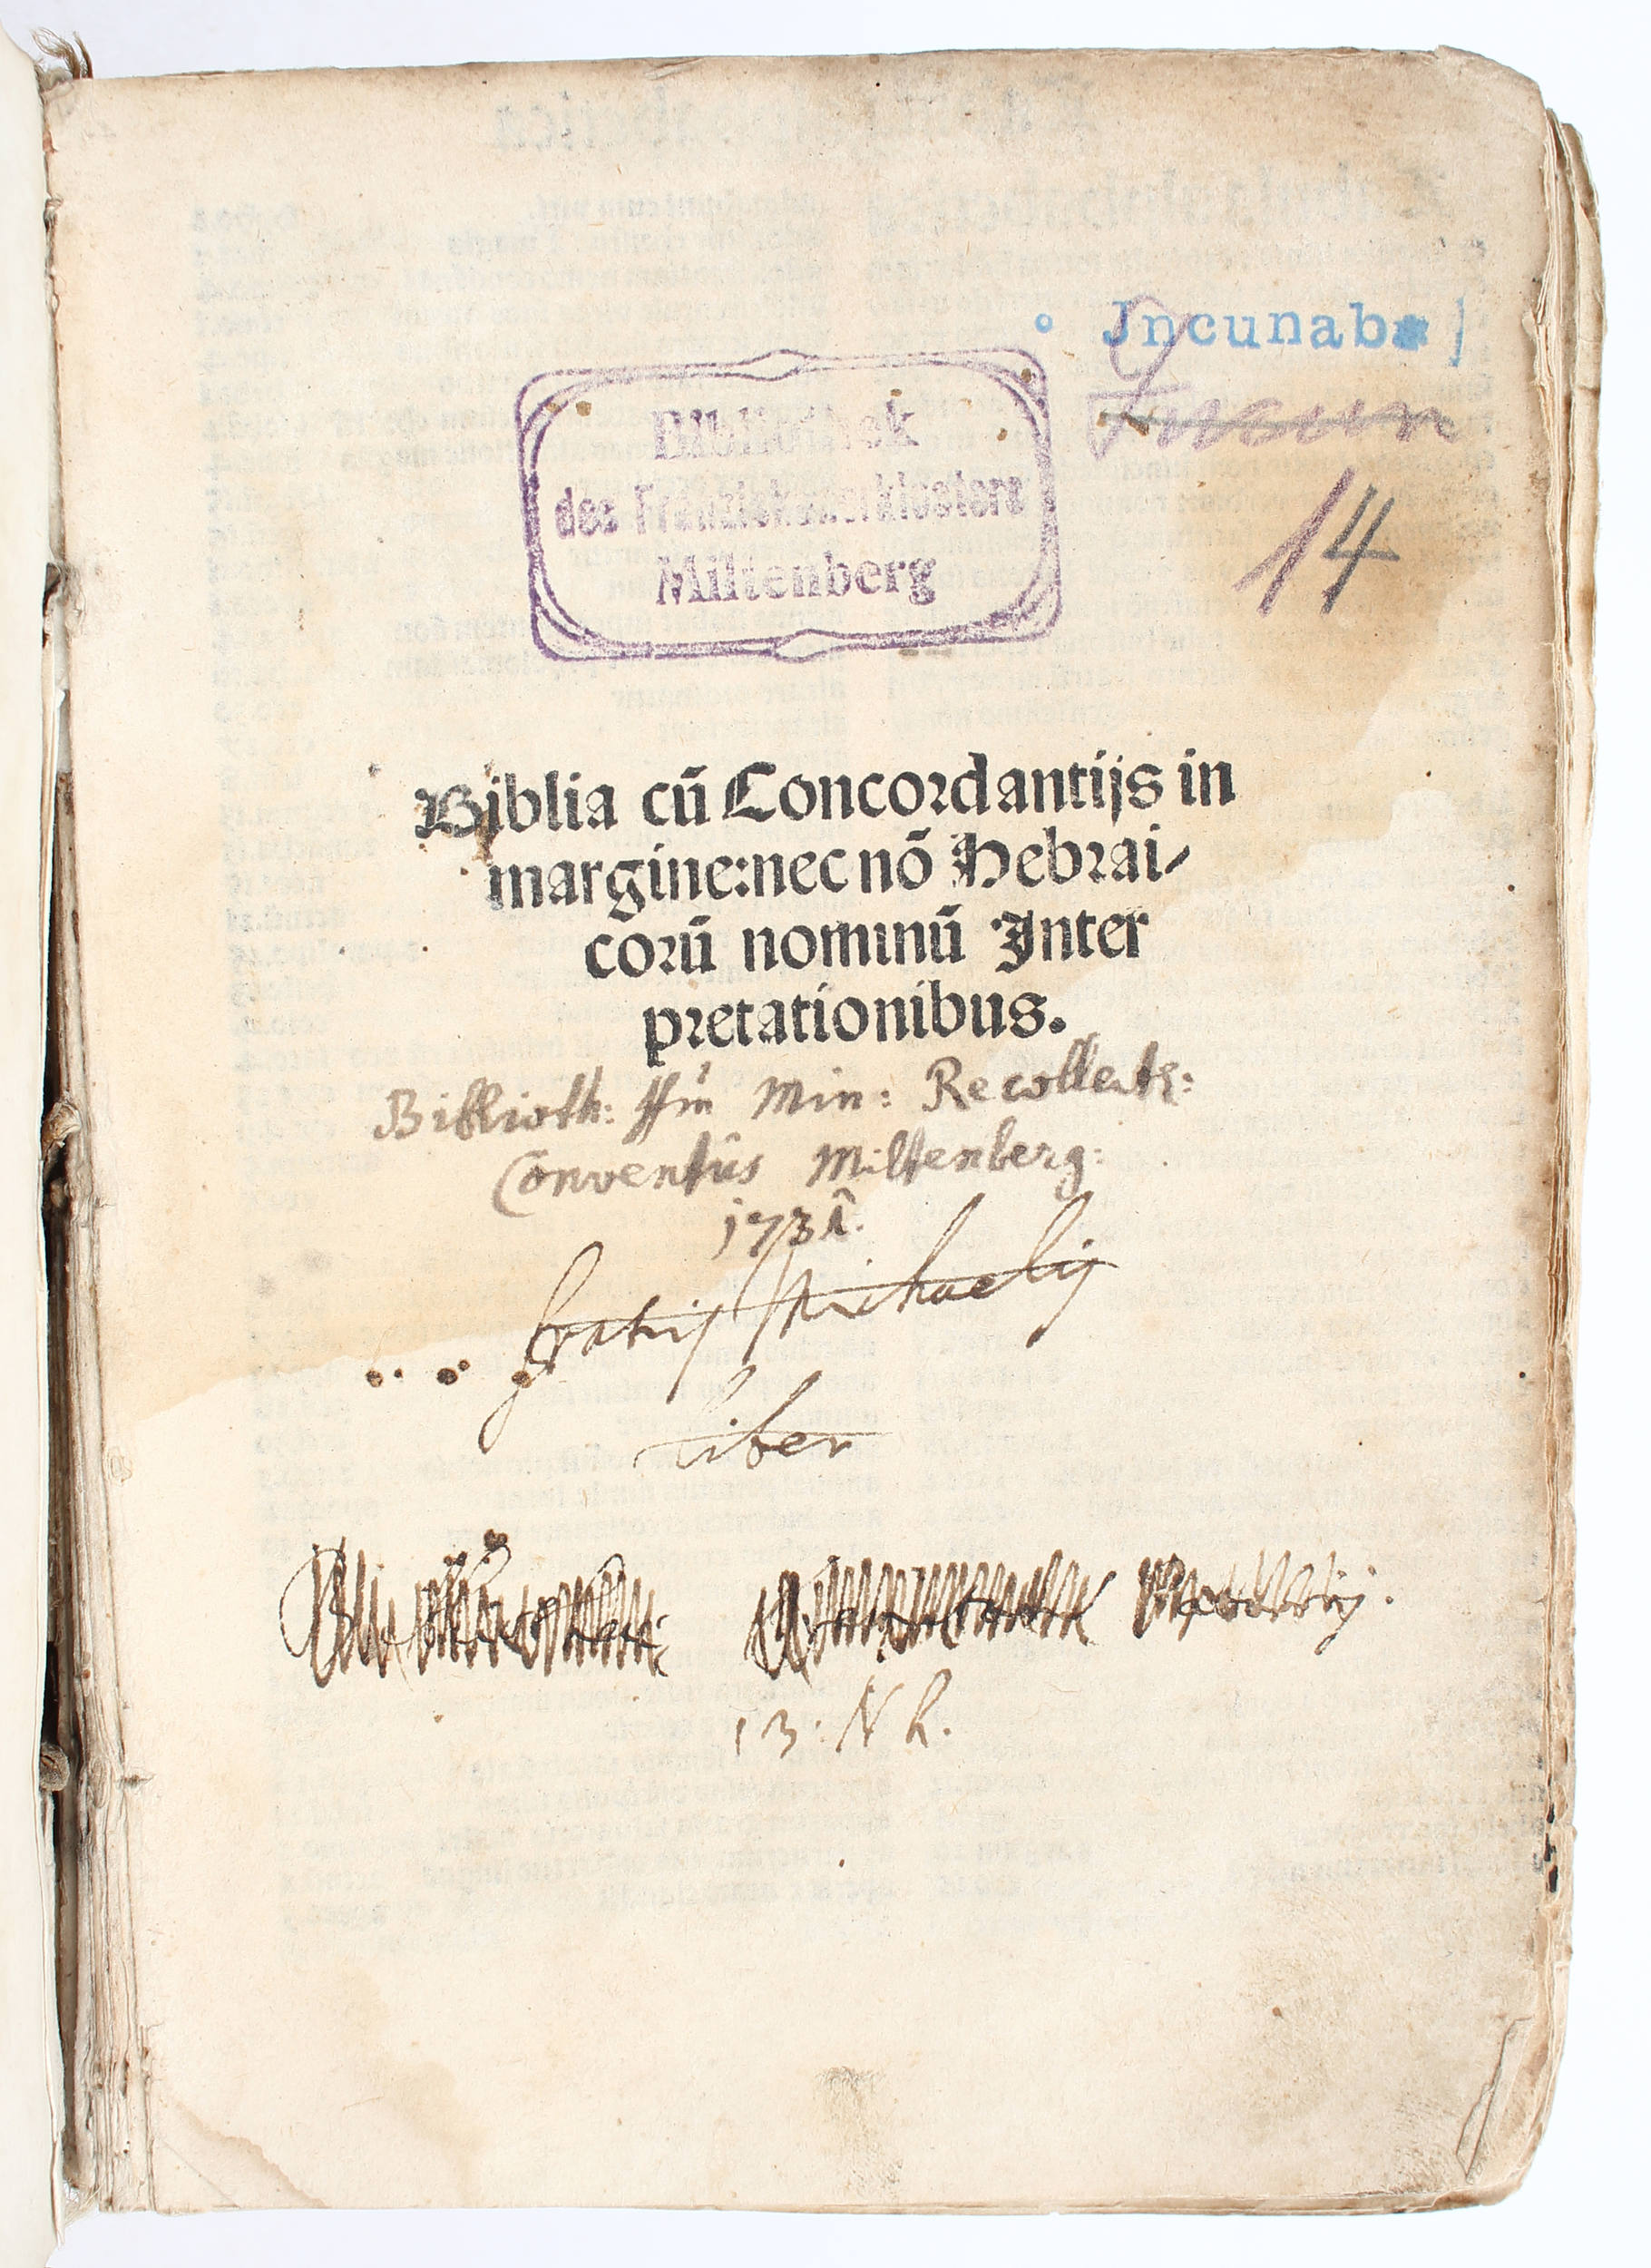 Jncunab.
Incun
14
Bibliothek
des Franziskanerklosters
Miltenberg
Biblia cū Concordantijs in
margine: nec nō Hebrai/
corū nominū Inter
pretationibus.
Biblioth: ffm Min: Recollect:
Conventûs Miltenberg:
1731.
fratris Michaelis
Liber
13: N